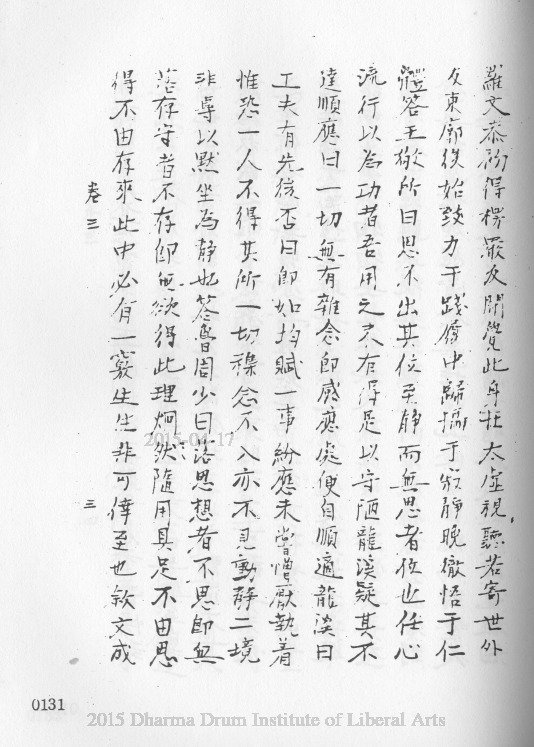 羅文恭初得楞嚴及閱覺此身在太虛視聽若寄世外
攵東廓後始致力于踐履中歸攝于寂靜晚徹悟于仁
體答王敬所曰思不出其位至靜而無思者位也任心
流行以為功者吾用之未有得是以守陋龍溪疑其不
達順應曰一切無有雜念即感應處便自順適龍溪曰
工夫有先後否曰即如均賦一事紛應未嘗憎厭執着
惟恐一人不得其所一切穓念不入亦不見動靜二境
非專以默坐為靜也荅魯周少曰落思想者不思即無
落存守者不存即無欲得此理炯然隨用具足不由思
得不由存來此中必有一竅生生非可倖至也敘文成
卷三 三
0131
2015-04-17
2015 Dharma Drum Institute of Liberal Arts